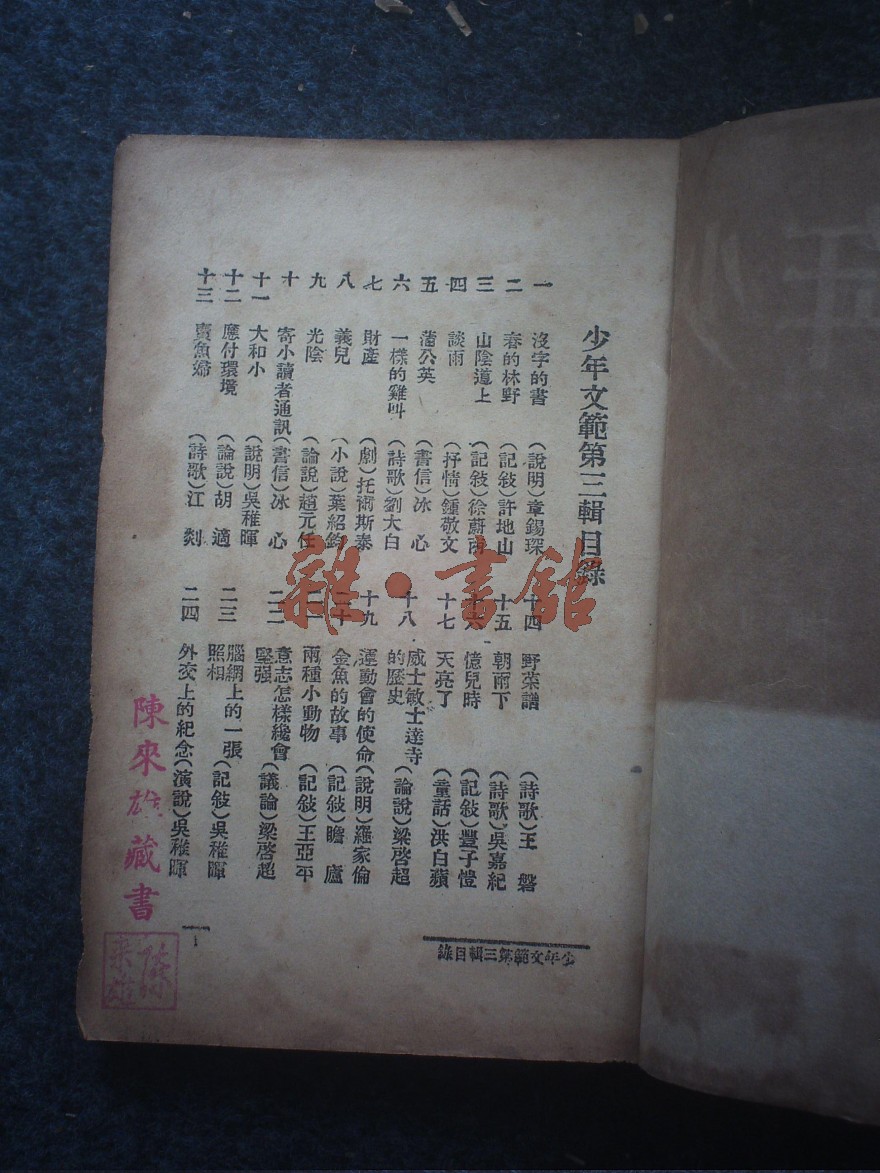 少年文範第三輯目錄
一 沒字的書 （說明）章錫琛
二 春的林野 （記敍）許地山
三 山陰道上 （記敍）徐蔚南
四 談雨 （抒情）鍾敬文
五 蒲公英 （書信）冰 心
六 一樣的雞叫 （詩歌）劉大白
七 財產 （劇）托爾斯泰
八 義兒 （小說）葉紹鈞
九 光陰 （論說）趙元任
十 寄小讀者通訊（書信）冰 心
十一 大和小 （說明）吳稚暉
十二 應付環境 （論說）胡 適
十三 賣魚婦 （詩歌）江 剡
十四 野菜譜 （詩歌）王 磐
十五 朝雨下 （詩歌）吳嘉紀
十六 憶兒時 （記敍）豐子愷
十七 天亮了 （童話）洪白蘋
十八 威士敏士達寺的歷史 （論說）梁啓超
十九 運動會的使命（說明）羅家倫
二十 金魚的故事 （記敍）瞻 廬
二一 兩種小動物 （記敍）王亞平
二二 意志怎樣纔會堅强 （議論）梁啓超
二三 腦網上的一張照相 （記敍）吳稚暉
二四 外交上的紀念（演說）吳稚暉
少年文範第三輯目錄
一
陳來雄藏書
雜·書館